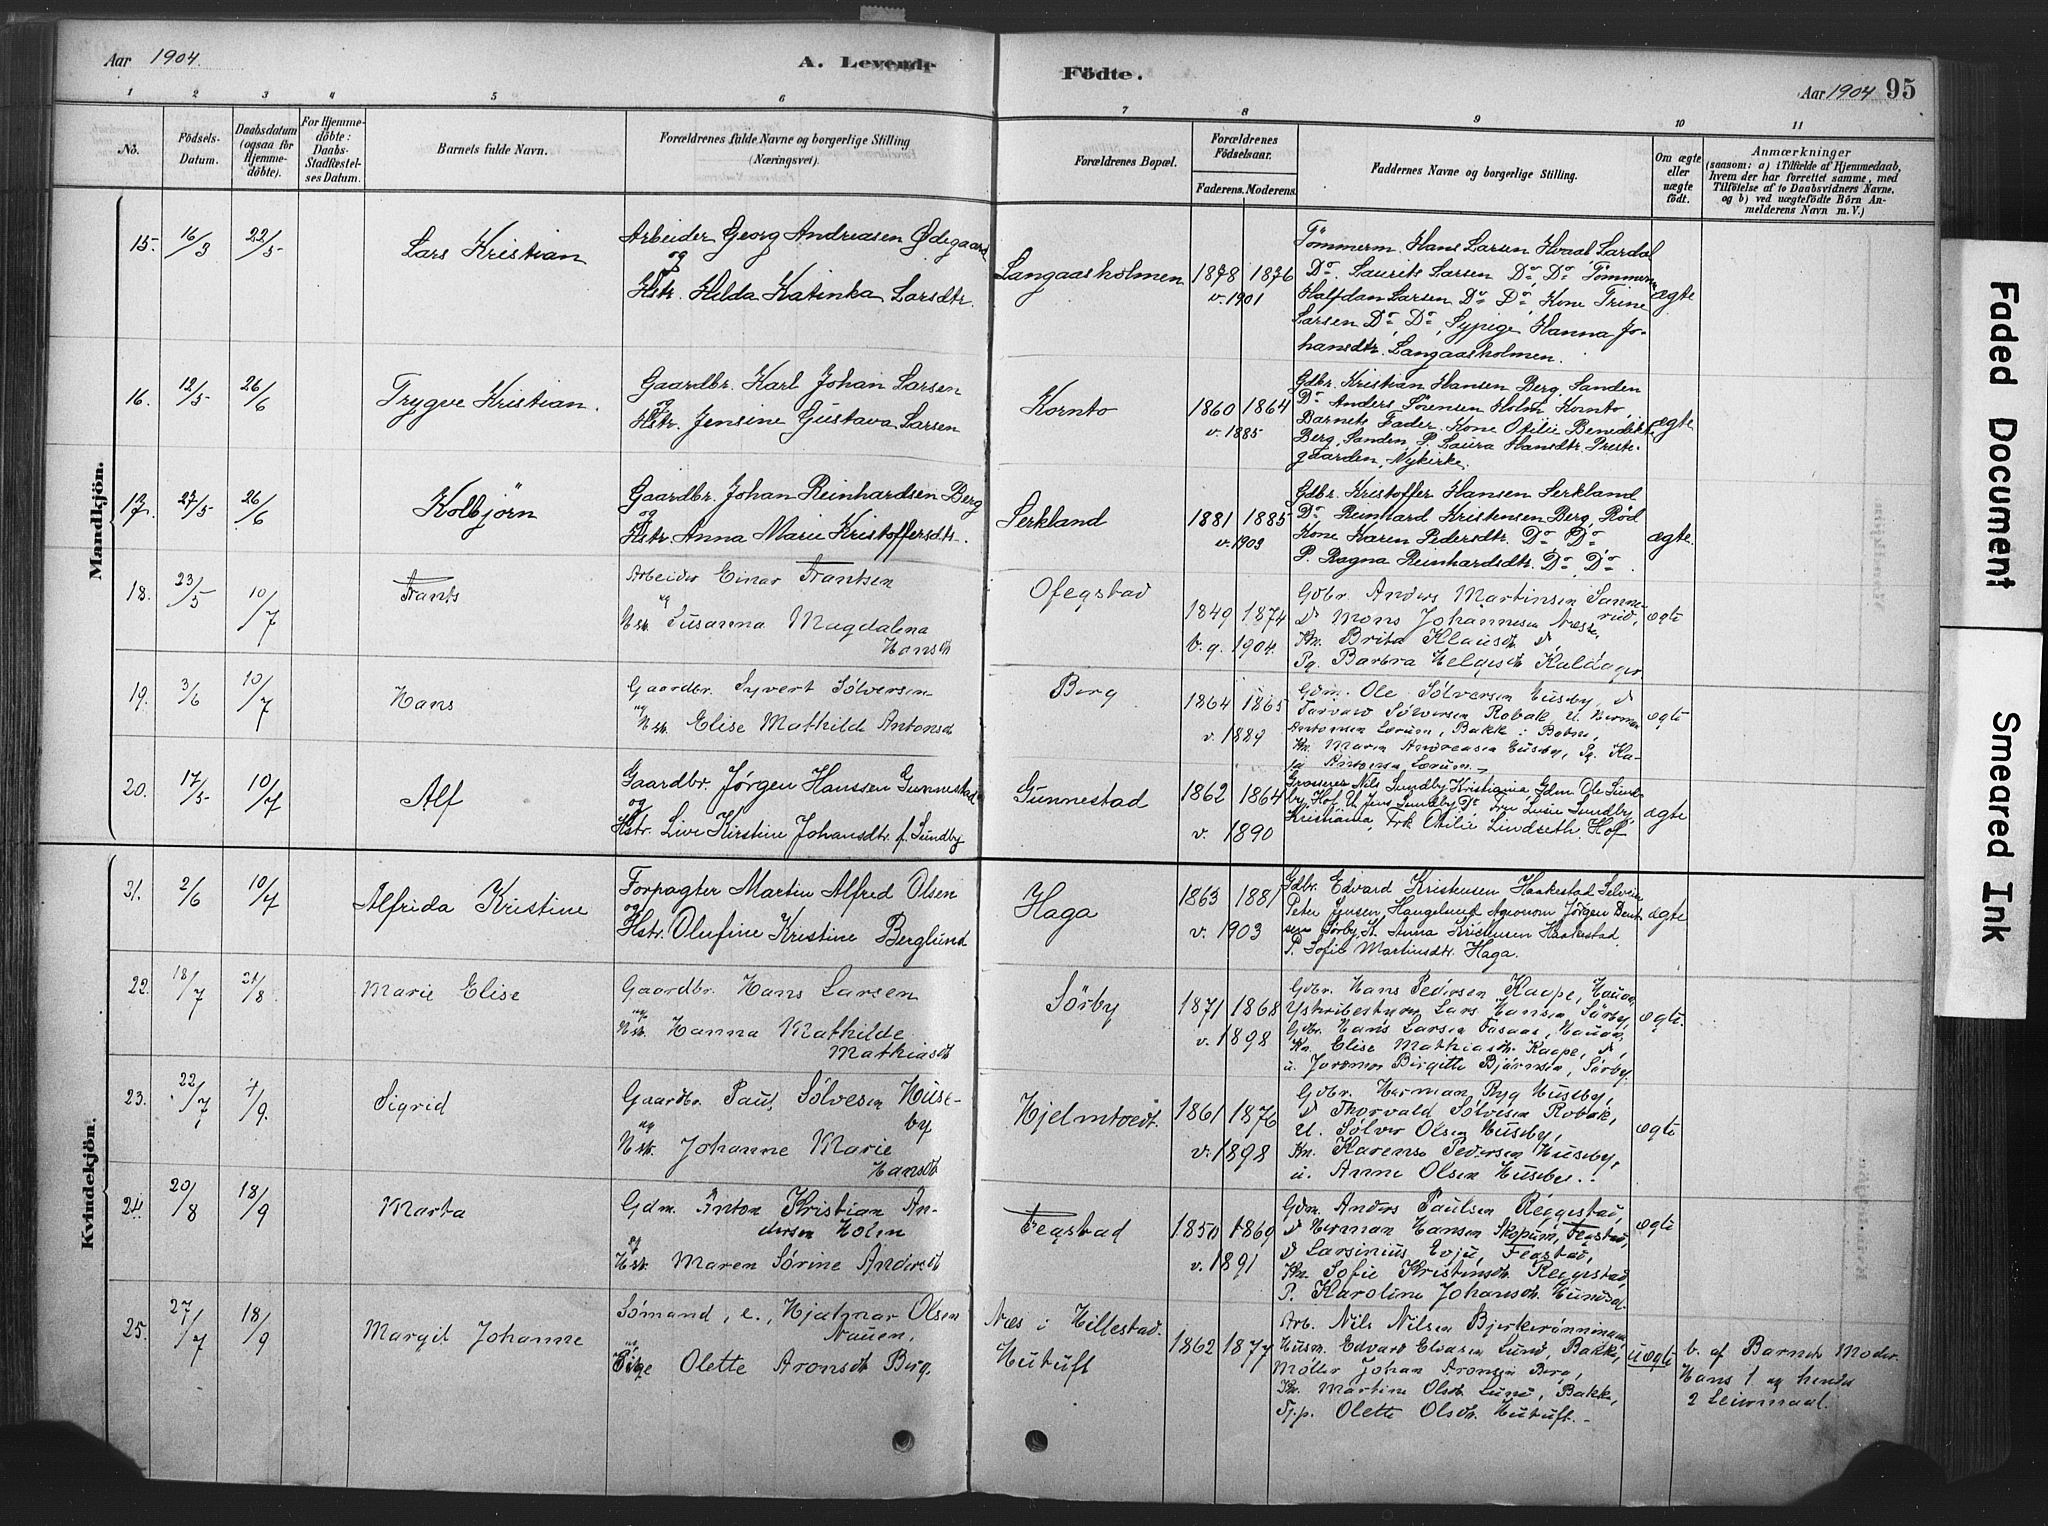 Aar 1904.
A. Levende
Födte.
Aar 1904 95
1 2 3 4 5 6 7 8 9 10 11
No.
Födsels-
Datum.
Daabsdatum
(ogsaa för
Hjemme-
döbte).
For Hjemme-
döbte:
Daabs-
Stadfæstel-
ses Datum.
Barnets fulde Navn.
Forældrenes fulde Navne og borgerlige Stilling
(Næringsvei).
Forældrenes Bopæl.
Forældrenes
Födselsaar.
Faderens. Moderens.
Faddernes Navne og borgerlige Stilling.
Om ægte
eller
uægte
født.
Anmærkninger
(saasom: a) i Tilfælde af Hjemmedaab,
hvem der har forrettet samme, med
Tilföielse af to Daabsvidners Navne.
og b) ved uægtefödte Börn An-
melderens Navn m. V.)
Mandkjön.
15. 16/3 22/5
Lars Kristian
Arbeider Georg Andreasen Ødegaard
og
Hstr. Hilda Katinka Larsdtr.
Langaasholmen
1878 1876
v. 1901
Tömmerm. Hans Larsen Hvaal Lardal
Do. Laurits Larsen Do, Do Tömmerm
Halfdan Larsen Do Do, Kone Trine
Larsen Do, Do, Sypige Hanna Jo-
hansdtr. Langaasholmen.
ægte
16. 12/5 26/6
Trygve Kristian.
Gaardbr. Karl Johan Larsen
og
Hstr. Jensine Gustava Larsen
Kornto
1860 1864
v. 1885
Gdbr. Kristian Hansen Berg, Sanden
Do Anders Sörensen Holm Kornto,
Barnets Fader. Kone Otilie Benedikte
Berg, Sanden, P. Laura Hansdtr. Preste-
gaarden, Nykirke.
ægte
17. 27/5 26/6
Kolbjörn
Gaardbr. Johan Reinhardsen Berg
og
Hstr. Anna Marie Kristoffersdtr.
Serkland
1881 1885
v. 1903
Gdbr. Kristoffer Hansen Serkland
Do Reinhard Kristensen Berg, Rød
Kone Karen Pedersdtr. Do Do
P. Ragna Reinhardsdtr. Do, Do
ægte.
18. 23/5 10/7
Frants
Arbeider Einar Frantsen
og
Hstr. Susanna Magdalena
Hansdt
Ofegstad
1849 1874
b. g. 1904.
Gdbr. Anders Martinsen Sanne-
rud,
d Mons Johannesen Næss
Kn. Brita Klausdt. d
Pg. Barbra Helgesdt Kaldager
ægte
19. 3/6 10/7
Hans
Gaardbr. Syvert Sølversen
og
Hstr. Elise Mathilde Antonsdt
Berg
1864 1865
v. 1889
Gdm. Ole Sølversen Huseby, d
Torvald Sølversen Robak, U. Herman
Antonsen Lærum, Bakke i Botne,
Kn. Maren Andreasen Huseby, Pg. Ka-
ja Antonsen Lærum.
ægte
20. 17/5 10/7
Alf
Gaardbr. Jørgen Hanssen Gunnestad
og
Hstr. Live Kirstine Johansdtr. f. Sundby
Gunnestad
1862 1864
v. 1890
Grosserer Nils Sundby Kristiania Gdm. Ole Sund-
by, Hof U. Jens Sundby Do Fru Lusie Sundby,
Kristiania, Frk Otilie Lindseth Hof
ægte
Kvindekjön.
21. 2/6 10/7
Alfrida Kristine
Forpagter Martin Alfred Olsen
og
Hstr. Olufine Kristine Berglund
Haga
1863 1881
v. 1903
Gdbr. Edvard Kristensen Haakestad Selveier
Peter Jensen, Agronom Jørgen Bent-
sen Sørby K. Anna Kristensen Haakestad,
P. Sofie Martinsdtr. Haga.
ægte
22. 18/7 21/8
Marie Elise
Gaardbr. Hans Larsen
og
Hstr. Hanna Mathilde
Mathiasdt
Sørby
1871 1868
v. 1898
Gdbr. Hans Pedersen Kaape, Hauan,
Lars Hansen, Sørby,
Gdbr. Hans Larsen Fasaas, Hauan,
Kn. Elise Mathiasdt. Kaape, d,
u. Jordmor Birgitte Bjørnsen, Sørby.
ægte.
23. 22/7 4/9
Sigrid
Gaardbr. Paul Sølvesen Huse-
by
og
Hstr. Johanne Marie
Hansdt
Hjelmtvedt.
1861 1876
v. 1898
Gdbr. Herman Pyg Huseby,
d Thorvald Sølvesen Robak,
U. Sølver Olsen Huseby,
Kn. Karense Pedersen Huseby,
u. Anne Olsen Huseby.
ægte
24. 20/8 18/9
Marta
Gdm. Anton Kristian An-
dersen Holm
og
Hstr. Maren Sørine Andersdt
Fegstad
1850 1869
v. 1891
Gdm. Anders Paulsen Reggestad,
d Herman Hansen Skopum, Fegstad,
d Larsinius Evju, Fegstad,
Kn. Sofie Kristinsdt. Reggestad,
P. Karoline Johansdt.
ægte
25. 27/7 18/9
Margit Johanne
Sømand, e., Hjalmar Olsen
Nauen,
og
Pige Olette Aronsdt Berg.
Næs i Hillestad.
Hutuft
1862 1877
Arb. Nils Nilsen Bjerkerønningen
Husm. Edvard Eliasen Lund, Bakke,
Møller Johan Aronsen Berg,
Kn. Martine Olsdt. Lund, Bakke,
Tj.p. Olette Olsdt. Hutuft.
uægte
b. af Barnets Moder.
Hans 1 og hendes
2 Leiermaal.
Faded Document
Smeared Ink